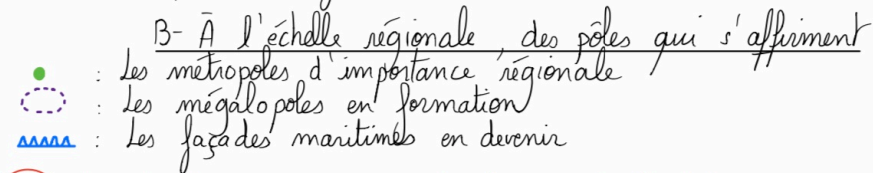 B- À l'échelle régionale, des pôles qui s'affirment
: Les métropoles d'importance régionale
: Les mégalopoles en formation
: Les façades maritimes en devenir